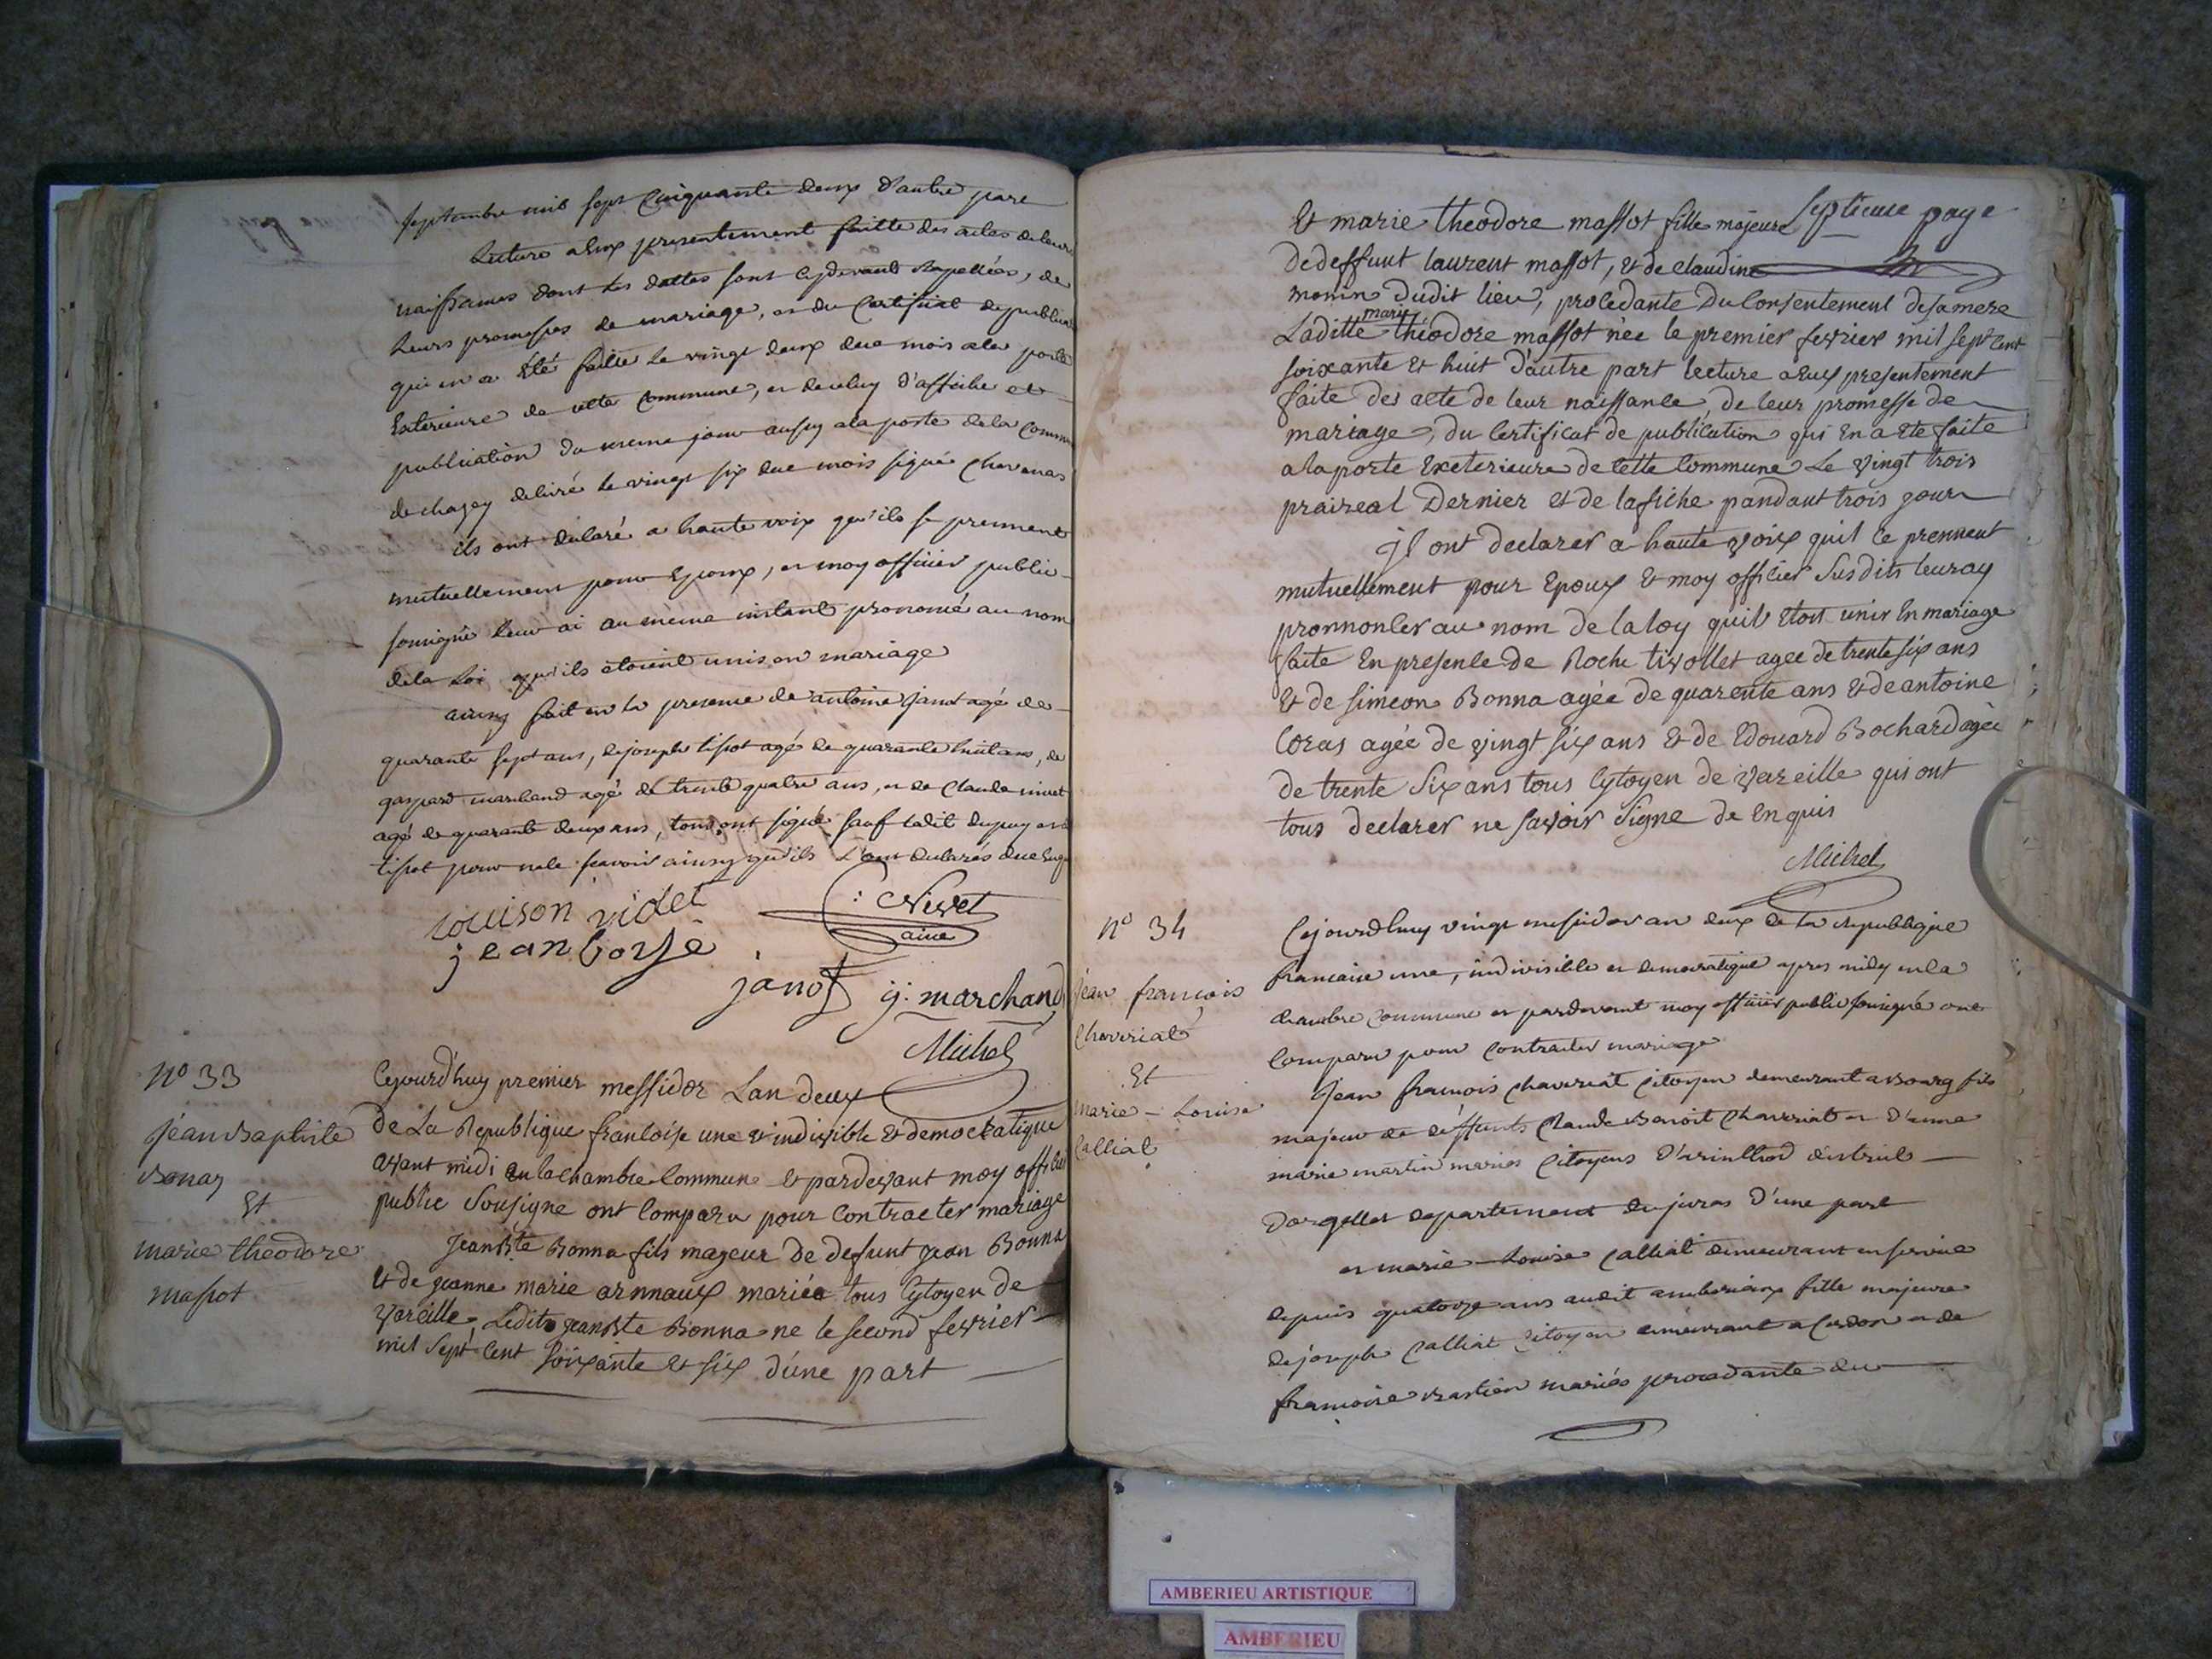 septembre mil sept Cinquante deux d'autre part
Lecture a Eux presentement faitte des actes de leurs
naissances dont les dattes sont cydevant Rapellées, de
leurs promesses de mariage, et du Certificat de publica
qui en a été faitte le vingt deux due mois a la porte
Exterieure de cette Commune, et de celuy d'affiche et
publication du meme jour aussy a la porte de la Commu
de chazey delivré le vingt six due mois signé Chavanas
ils ont declaré a haute voix qu'ils se prennent
mutuellement pour Epoux, et moy officier public
sousigné leur ai au même instant prononcé au nom
de la Loi qu'ils étoient unis en mariage
ainsy fait en la presence de antoine Janot agé de
quarante sept ans, de joseph tissot agé de quarante huit ans, de
gaspard marchand agé de trente quatre ans, et de Claude nivet
agé de quarante deux ans, tous ont signé sauf ladit dupuy et
tissot pour ne le scavoir ainsy qu'ils L'ont declarés due Enqu
louison violet
C: Nivet
ainé
jean Corse
janot
g. marchand
Michel
n° 33
jean Baptiste
Bonas
Et
marie theodore
massot
Cejourd'huy premier messidor Lan deux
De La Republique francoise une & indivisible & democratique
avant midi en la chambre Commune & pardevant moy officier
public Sousigne ont Comparu pour Contracter mariage
Jean Bte Bonna fils majeur De defunt jean Bonna
et de jeanne marie arnnaux mariée tous Cytoyen de
Vareille Ledit jean Bte Bonna ne le second fevrier
mil Sept Cent Soixante et six d'une part
Septieme page
Et marie theodore massot fille majeure
De deffunt laurent massot, et de Claudine
monin dudit lieu, procedante Du Consentement de sa mere
Laditte marie théodore massot née le premier fevrier mil sept Cent
soixante et huit D'autre part lecture a eux presentement
faite des acte de leur naissance, de leur promesse de
mariage, du Certificat de publication qui En a Ete faite
a la porte Exeterieure de Cette Commune Le vingt trois
praireal Dernier et de lafiche pandant trois jours
Jl ont declarer a haute voix quil Ce prennent
mutuellement pour Epoux & moy officier Susdits leur ay
pronnoncer au nom De la loy quil Etois unir En mariage
faite En presence de Roche tivollet agee de trente six ans
& de simeon Bonna agée de quarente ans & de antoine
Coras agée de vingt six ans & de Edouard Bochard agée
de trente Six ans tous Cytoyen de Vareille qui ont
tous declarer ne Savoir Signe de Enquis
Michel
n° 34
jean francois
Chavriat
Et
Marie - Louise
Calliat
Cejourdhuy vingt messidor an deux de la Republique
francaise une, indivisible et democratique apres midy en la
chambre Commune et pardevant moy officier public sousigné ont
Comparu pour Contracter mariage
Jean francois Chavriat Citoyen demeurant a Bourg fils
majeur de deffunts Claude Benoit Chavriat et D'anne
marie martin mariés Citoyens D'arinthod district
Dorgellet departement du juras D'une part
et marie - Louise Calliat demeurant en service
depuis quatorze ans audit amberieux fille majeure
de joseph Calliat Citoyen demeurant a Cerdon et de
francoise Bastien mariés procedante du
AMBERIEU ARTISTIQUE
AMBERIEU